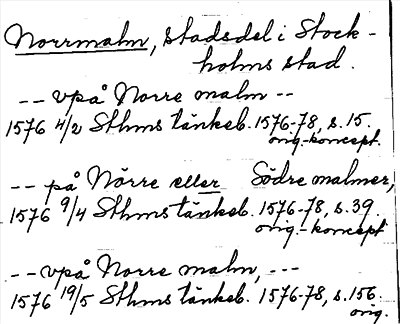 Norrmalm, stadsdel i Stock-
holms stad.
-- vpå Norre malm --
1576 4/2 Sthms tänkeb. 1576-78, s. 15.
orig.-koncept.
-- på Nörre eller Södre malmer,
1576 9/4 Sthms tänkeb. 1576-78, s. 39.
orig.-koncept
-- vpå Norre malm, ---
1576 19/5 Sthms tänkeb. 1576-78, s. 156.
orig.